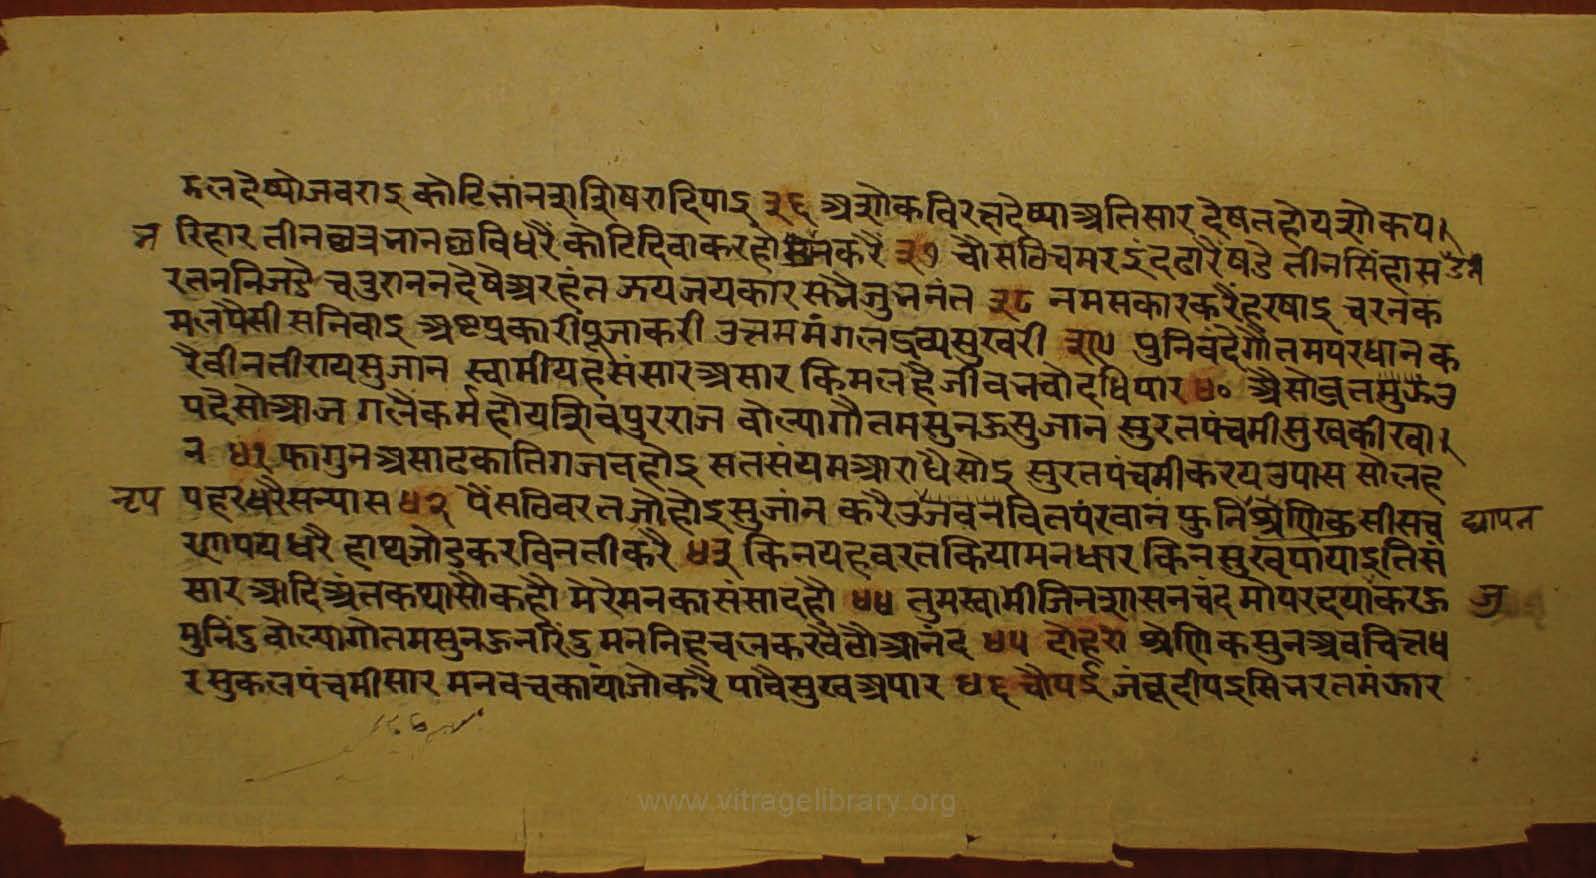 मलदेष्यौजवराइ कोटिभानशशिषरादिपाइ ३६ अशोकविरतदेष्याअतिसार देषतहोयशोकप
न रिहार तीनछत्रभानछविधरै कोटिदिवाकरहो करै ३७ चौसठिचमरइंदढारै षडे तीनसिंहास
रतननिजडै चतुराननदेषैअरहंत जयजयकार सभैजुभनंत ३८ नमसकारकरैंहरषाइ चरनक
मलपैसीसनिवाइ अष्टप्रकारीपूजाकरी उत्तममंगलद्रव्यसुखरी ३९ पुनिवंदेगौतमपरधान क
रैवीनतीरायसुजान स्वामीयहसंसारअसार किमलहैजीवभवोदधिपार ४० अैसोव्रत
पदैसोआज गलैकर्महोयशिवपुरराज वोल्यागौतमसुनऊसुजान सुरतपंचमीसुखकीखा
न ४१ फागुनअसाढकातिगजवहोइ सतसंयमआराधैसोइ सुरतपंचमीकरयउपास सोलह
नृप पहरधरैसन्यास ४२ पैंसठिवरतजौहोइसुजांन करैउजवनवितपरवांन फुनिश्रेणिकसीसच द्यापन
रणपयधरै हाथजौडकरविनतीकरै ४३ किनयहवरतकियामनधार किनसुखपायाइतिसं
सार आदिअंतकथासौकहौ मेरेमनकासंसादहौ ४४ तुमस्वामीजिनशासनचंद मोपरदयाकरऊ जु
मुनिंद वोल्यागौतमसुनऊनरिंद मननिहचलकर आनंद ४५ दोहरा श्रेणिकसुनअवचित्तध
रसुकलपंचमीसार मनवचकायांजौकरै पावैसुखअपार ४६ चौपई जंबूदीपइसिभरतमंझार
www.vitragelibrary.org